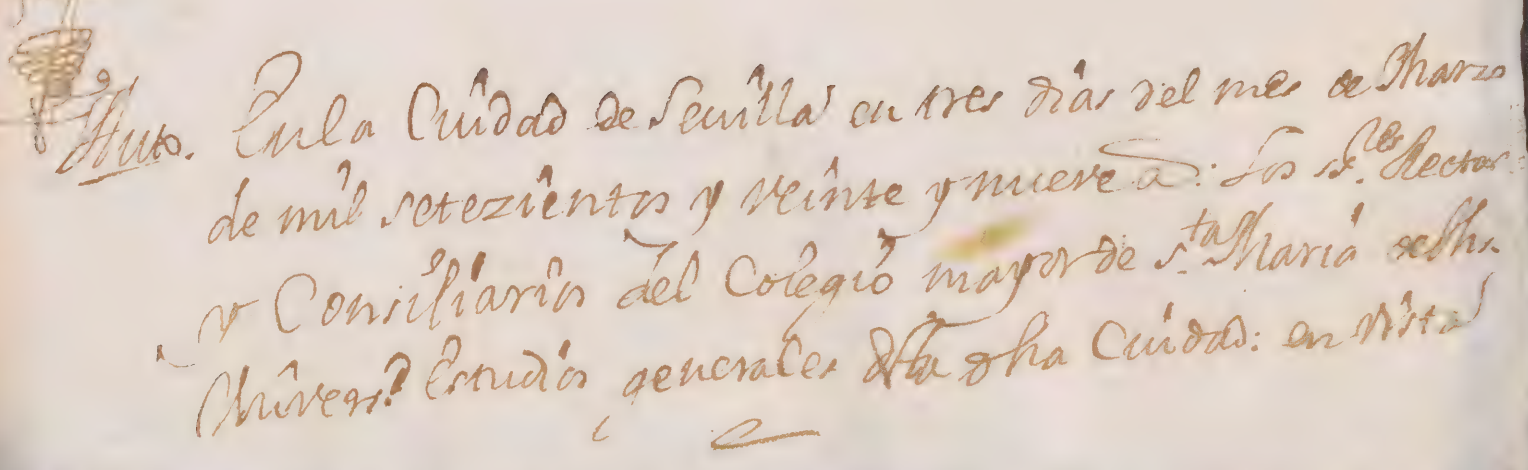 Auto. En la Ciudad de Sevilla en tres dias del mes de Marzo
de mil setezientos y veinte y nueve a.: Los ss.res Rector
y Consiliarios del Colegio mayor de s.ta Maria de Jhs.
Univers.d Estudios generales desta dha Ciudad: en vista